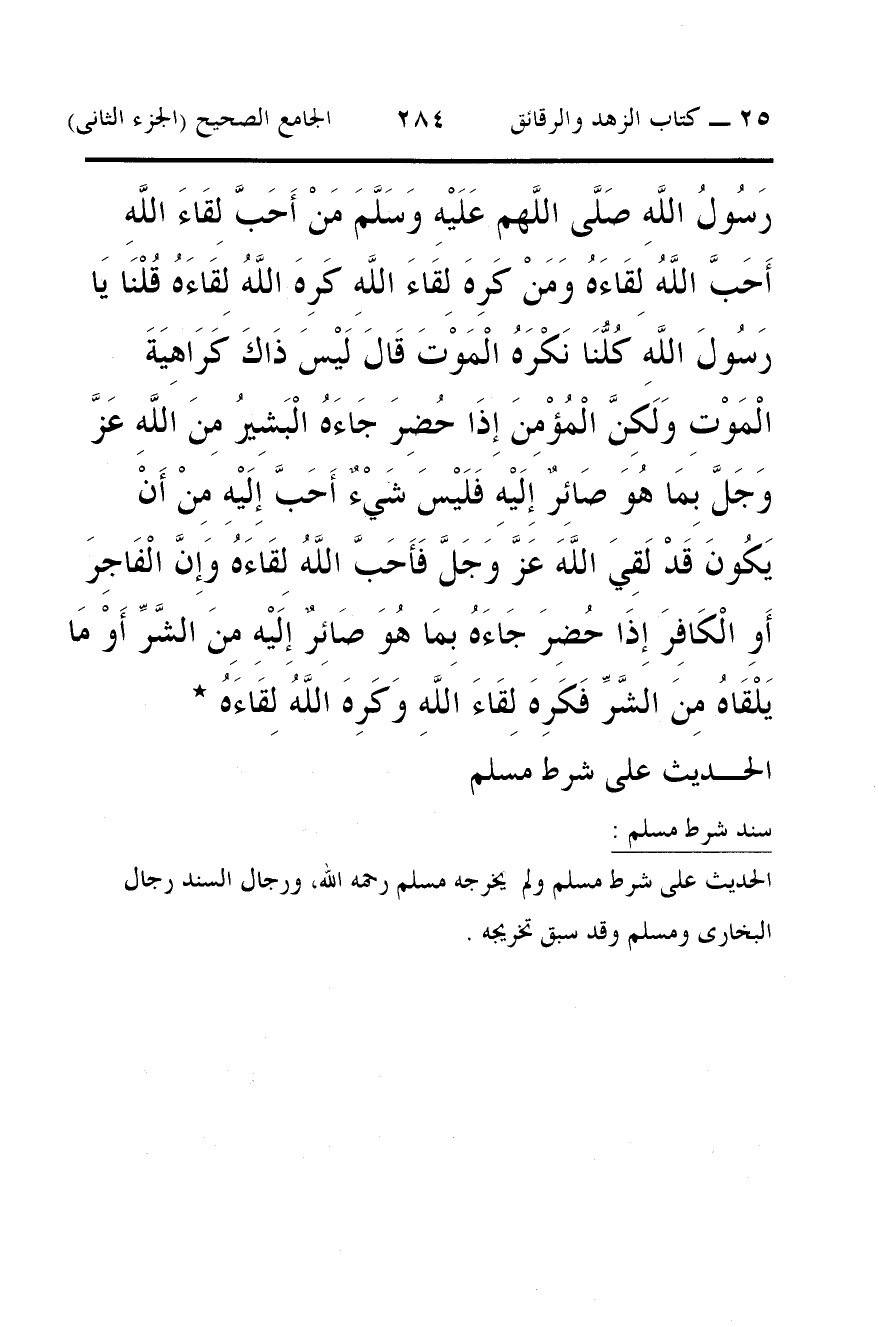 ٢٥ ــ كتاب الزهد والرقائق ٢٨٤ الجامع الصحيح (الجزء الثانى)
رَسُولُ اللَّهِ صَلَّى اللَّهم عَلَيْهِ وَسَلَّمَ مَنْ أَحَبَّ لِقَاءَ اللَّهِ
أَحَبَّ اللَّهُ لِقَاءَهُ وَمَنْ كَرِهَ لِقَاءَ اللَّهِ كَرِهَ اللَّهُ لِقَاءَهُ قُلْنَا يَا
رَسُولَ اللَّهِ كُلُّنَا نَكْرَهُ الْمَوْتَ قَالَ لَيْسَ ذَاكَ كَرَاهِيَةَ
الْمَوْتِ وَلَكِنَّ الْمُؤْمِنَ إِذَا حُضِرَ جَاءَهُ الْبَشِيرُ مِنَ اللَّهِ عَزَّ
وَجَلَّ بِمَا هُوَ صَائِرٌ إِلَيْهِ فَلَيْسَ شَيْءٌ أَحَبَّ إِلَيْهِ مِنْ أَنْ
يَكُونَ قَدْ لَقِيَ اللَّهَ عَزَّ وَجَلَّ فَأَحَبَّ اللَّهُ لِقَاءَهُ وَإِنَّ الْفَاجِرَ
أَوِ الْكَافِرَ إِذَا حُضِرَ جَاءَهُ بِمَا هُوَ صَائِرٌ إِلَيْهِ مِنَ الشَّرِّ أَوْ مَا
يَلْقَاهُ مِنَ الشَّرِّ فَكَرِهَ لِقَاءَ اللَّهِ وَكَرِهَ اللَّهُ لِقَاءَهُ *
الحـــديث على شرط مسلم
سند شرط مسلم :
الحديث على شرط مسلم ولم يخرجه مسلم رحمه الله، ورجال السند رجال
البخارى ومسلم وقد سبق تخريجه .